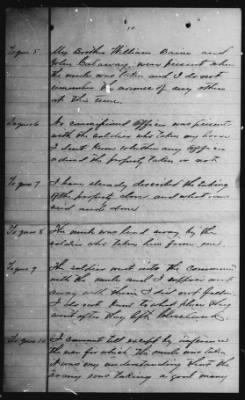 To ques 5 My Brother William Baine and
John Calaway were present when
the mule was taken and I do not
remember the names of any others
at the time.
To ques 6 No commissioned officer was present
with the soldier who taken my horse
I don't know whether any officer
ordered the property taken or not.
To ques 7 I have already described the taking
of the property above and what was
said and done
To ques 8 The mule was lead away by the
soldier who taken him from me.
To ques 9 The soldier went into the command
with the mule and I
with them I did not follow
I do not know to what place they
went after they left
To ques 10 I cannot tell except by inference
the use for which the mule was taken
it was my understanding that the
army was taking a good many